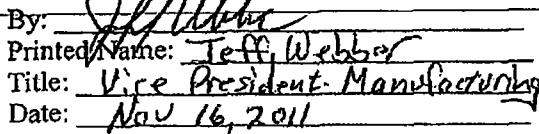 By:
Printed Name: Jeff Webber
Title: Vice President. Manufacturing
Date: Nov 16, 2011